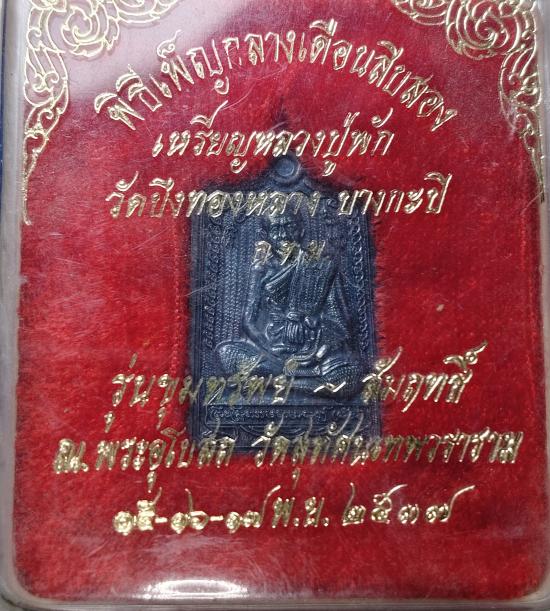 พิธีเพ็ญกลางเดือนสิบสอง
เหรียญหลวงปู่พัก
วัดบึงทองหลาง บางกะปิ
ก.ท.ม.
รุ่นขุมทรัพย์ ~ สัมฤทธิ์
ณ.พระอุโบสถ วัดสุทัศนเทพวราราม
๑๕-๑๖-๑๗ พ.ย. ๒๕๓๗